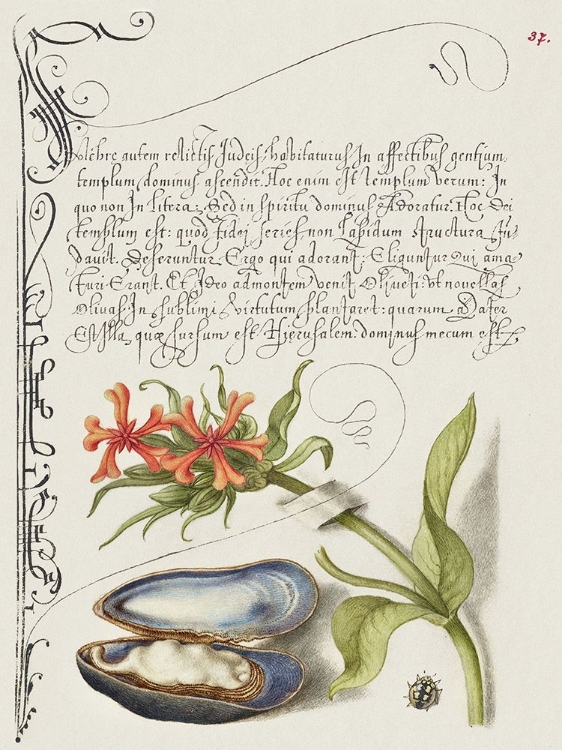 37.
Pulchre autem relictis Judeis habitaturus In affectibus gentium
templum, dominus ascendit. Hoc enim est templum verum: In
quo non In litera: Sed in spiritu dominus Adoratur. Hoc Dei
templum est: quod fidej series non lapidum structura fu,
davit. Deseruntur Ergo qui adorant: Eliguntur Qui ama,
turi Erant. Et Ideo ad montem venit Oliueti: vt nouellas
Oliuas In sublimi virtutum plantaret: quarum Mater
Est Illa quæ sursum est Hierusalem: dominus mecum est